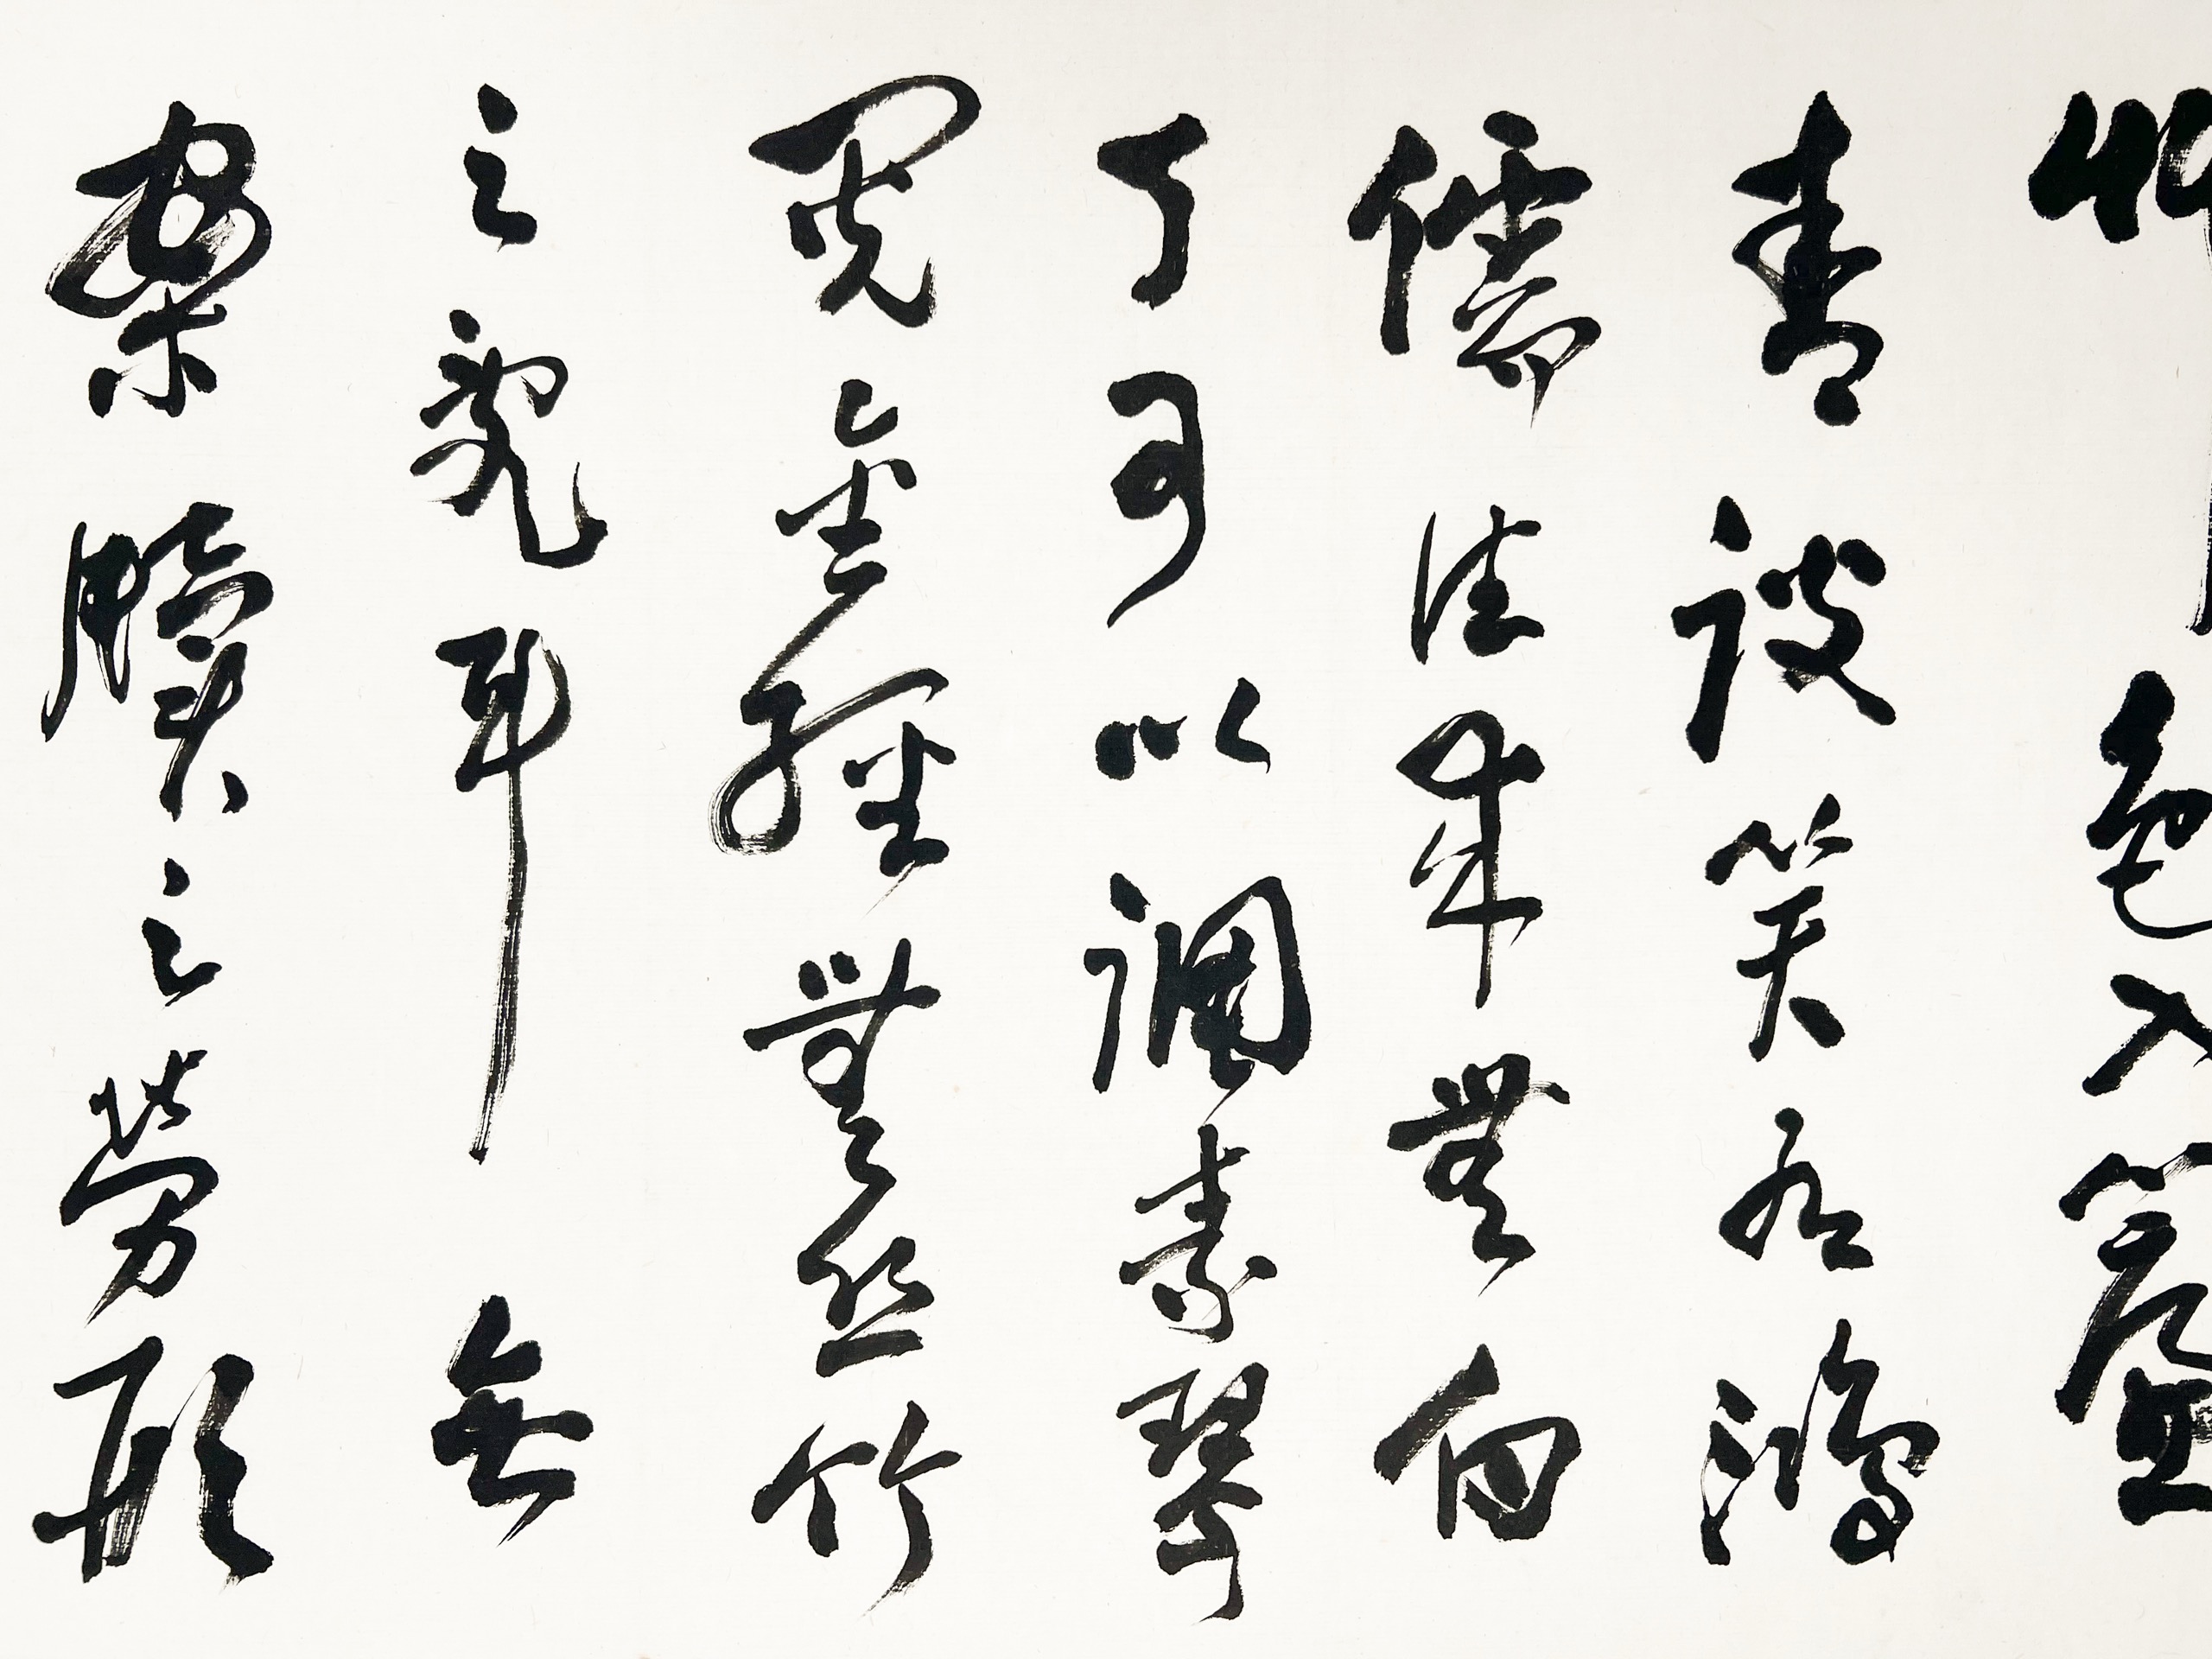 艸色入簾
青談笑有鴻
儒往来無白
丁可以調素琴
閱金經無丝竹
之亂耳無
案牘之勞形